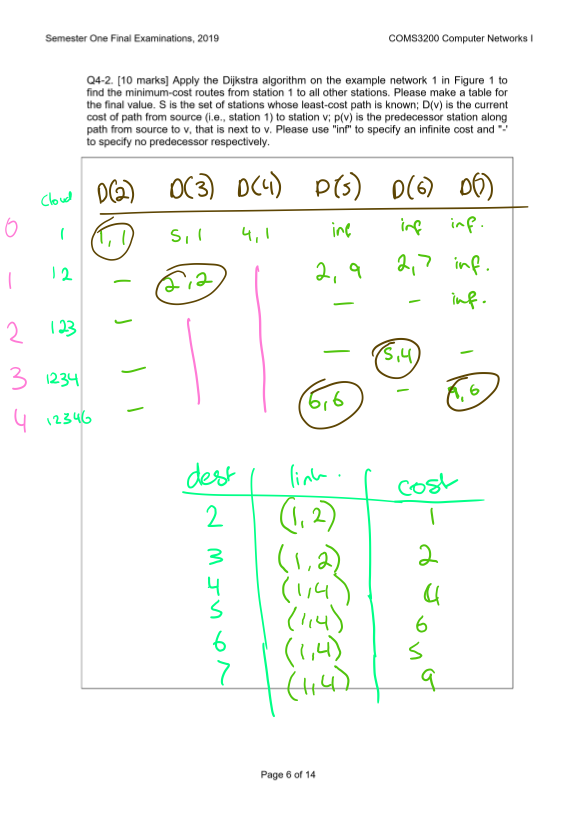 Semester One Final Examinations, 2019 COMS3200 Computer Networks I
Q4-2. [10 marks] Apply the Dijkstra algorithm on the example network 1 in Figure 1 to
find the minimum-cost routes from station 1 to all other stations. Please make a table for
the final value. S is the set of stations whose least-cost path is known; D(v) is the current
cost of path from source (i.e., station 1) to station v; p(v) is the predecessor station along
path from source to v, that is next to v. Please use "inf" to specify an infinite cost and "-'
to specify no predecessor respectively.
Cloud D(2) D(3) D(4) D(5) D(6) D(7)
0 1 1,1 5,1 4,1 inf inf inf.
1 12 – 2,2 2,9 2,7 inf.
– – inf.
2 123 –
– 5,4 –
3 1234 –
4 12346 – 6,6 – 9,6
dest link. cost
2 (1,2) 1
3 (1,2) 2
4 (1,4) 4
5 (1,4) 6
6 (1,4) 5
7 (1,4) 9
Page 6 of 14